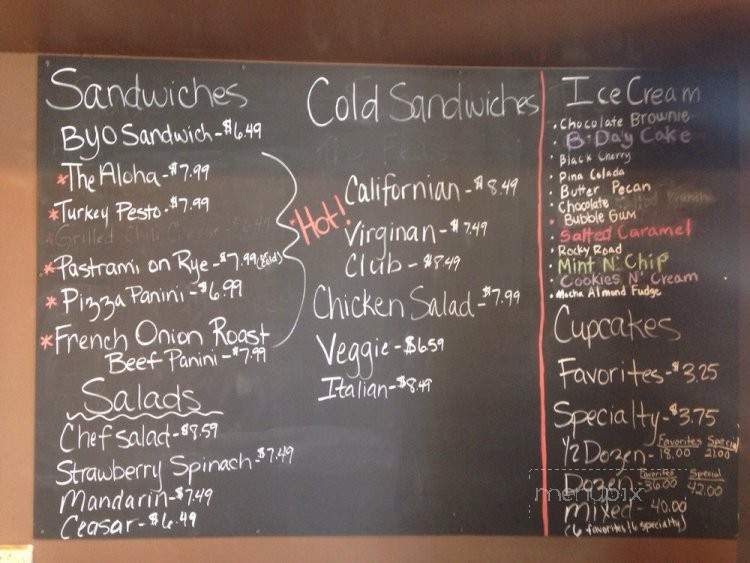 Sandwiches
BYO Sandwich - $6.49
*The Aloha - $7.99
*Turkey Pesto - $7.99
Grilled
*Pastrami on Rye - $7.99 (Cold)
*Pizza Panini - $6.99
*French Onion Roast
Beef Panini - $7.99
Hot!
Salads
Chef salad - $8.59
Strawberry Spinach - $7.49
Mandarin - $7.49
Ceasar - $6.49
Cold Sandwiches
Californian - $8.49
Virginan - $7.49
Club - $8.49
Chicken Salad - $7.99
Veggie - $6.59
Italian - $8.49
Ice Cream
• Chocolate Brownie
• B-Day Cake
• Black Cherry
• Pina Colada
• Butter Pecan
• Chocolate
• Bubble Gum
• Salted Caramel
• Rocky Road
• Mint N' Chip
• Cookies N' Cream
• Mocha Almond Fudge
Cupcakes
Favorites - $3.25
Specialty - $3.75
Favorites Special
1/2 Dozen - 18.00 21.00
Favorites Special
Dozen - 36.00 42.00
mixed - 40.00
(6 favorites/6 specialty)
menupix